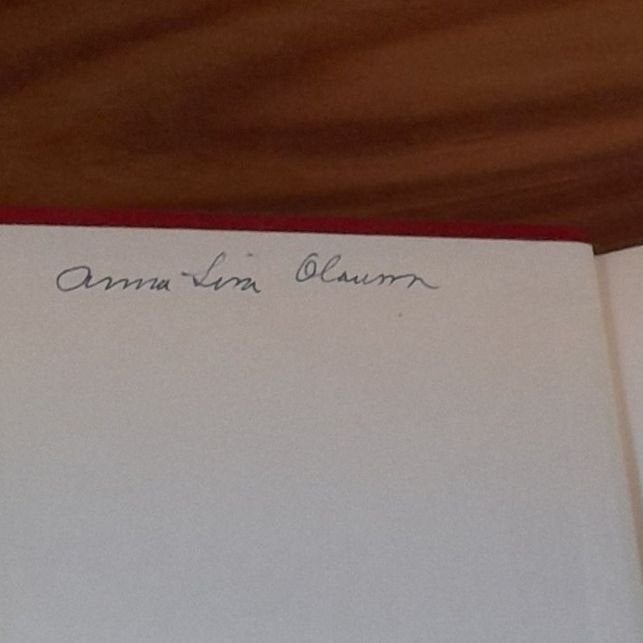 Anna-Lisa Olausson